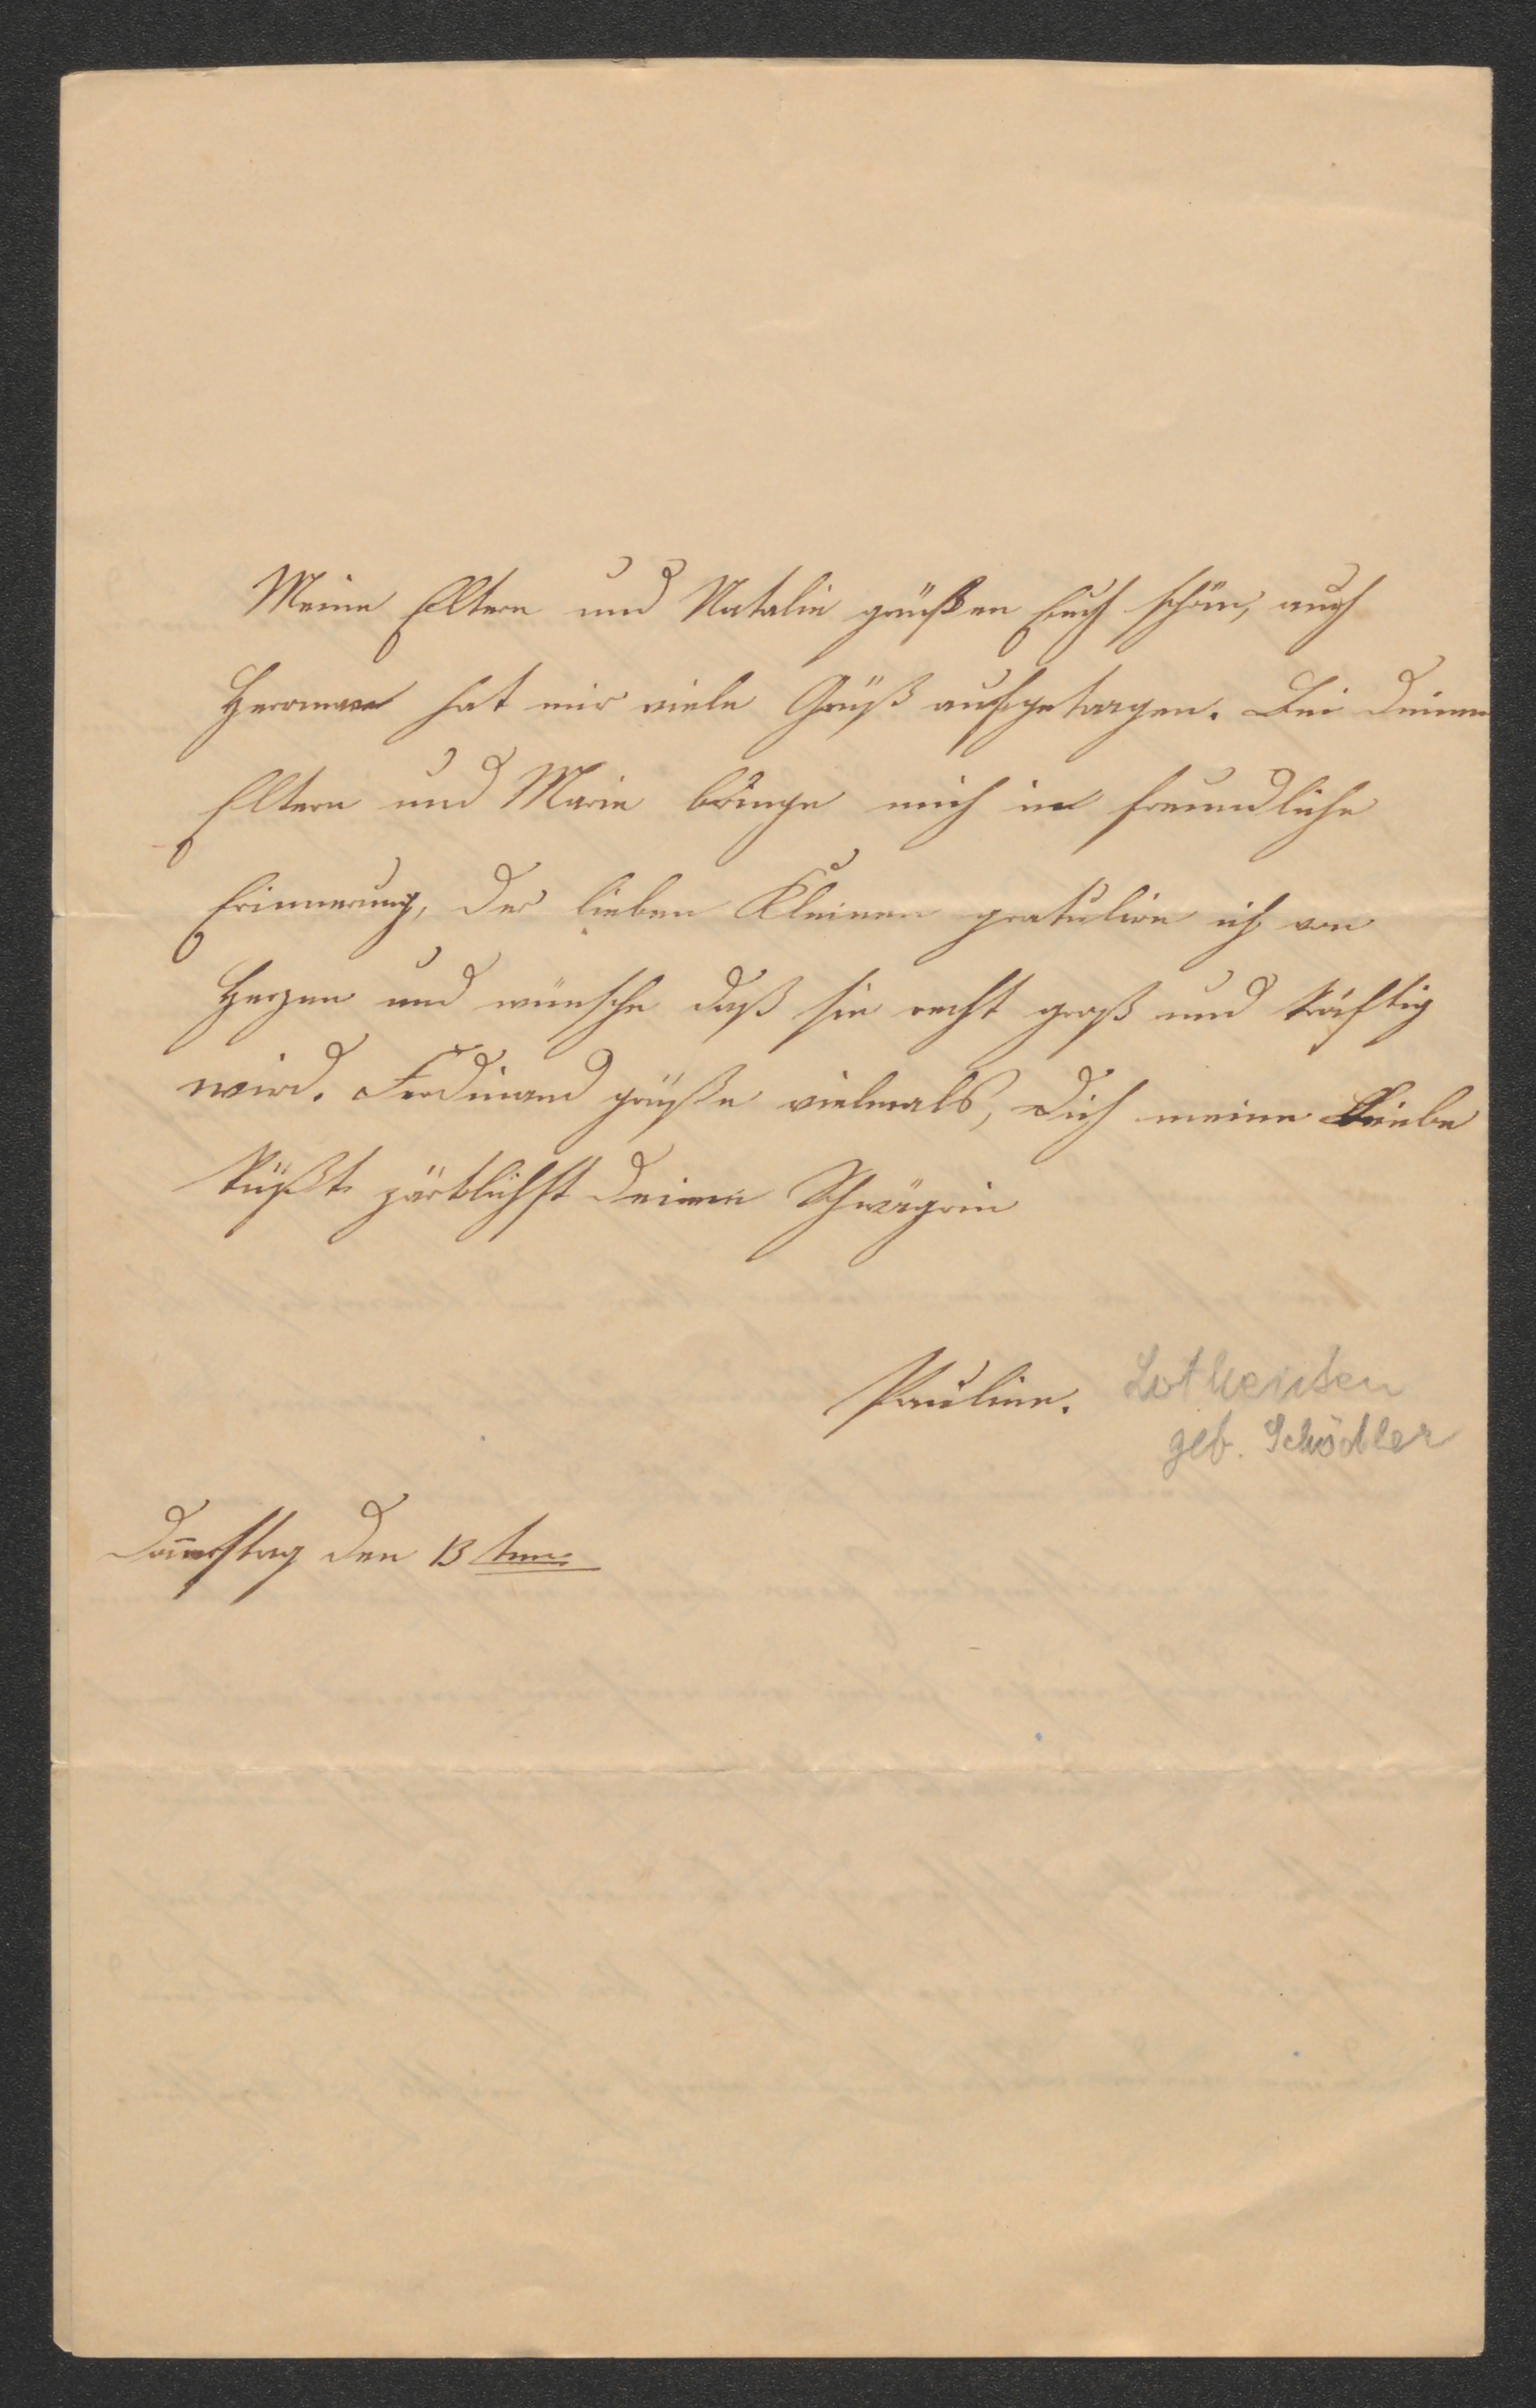 Meine Eltern und Natalie grüßen Euch schön, auch
Herrmann hat mir viele Grüß aufgetragen. Bei Deinen
Eltern und Marie bringe mich in freundliche
Erinnerung, der lieben Kleinen gratulire ich von
Herzen und wünsche daß sie recht groß und kräftig
wird. Ferdinand grüße vielmals, Dich meine Liebe
küßt zärtlichst Deine Schwägrin
Pauline. Lotheißen
geb. Schödler
Don̄erstag den 13 ten